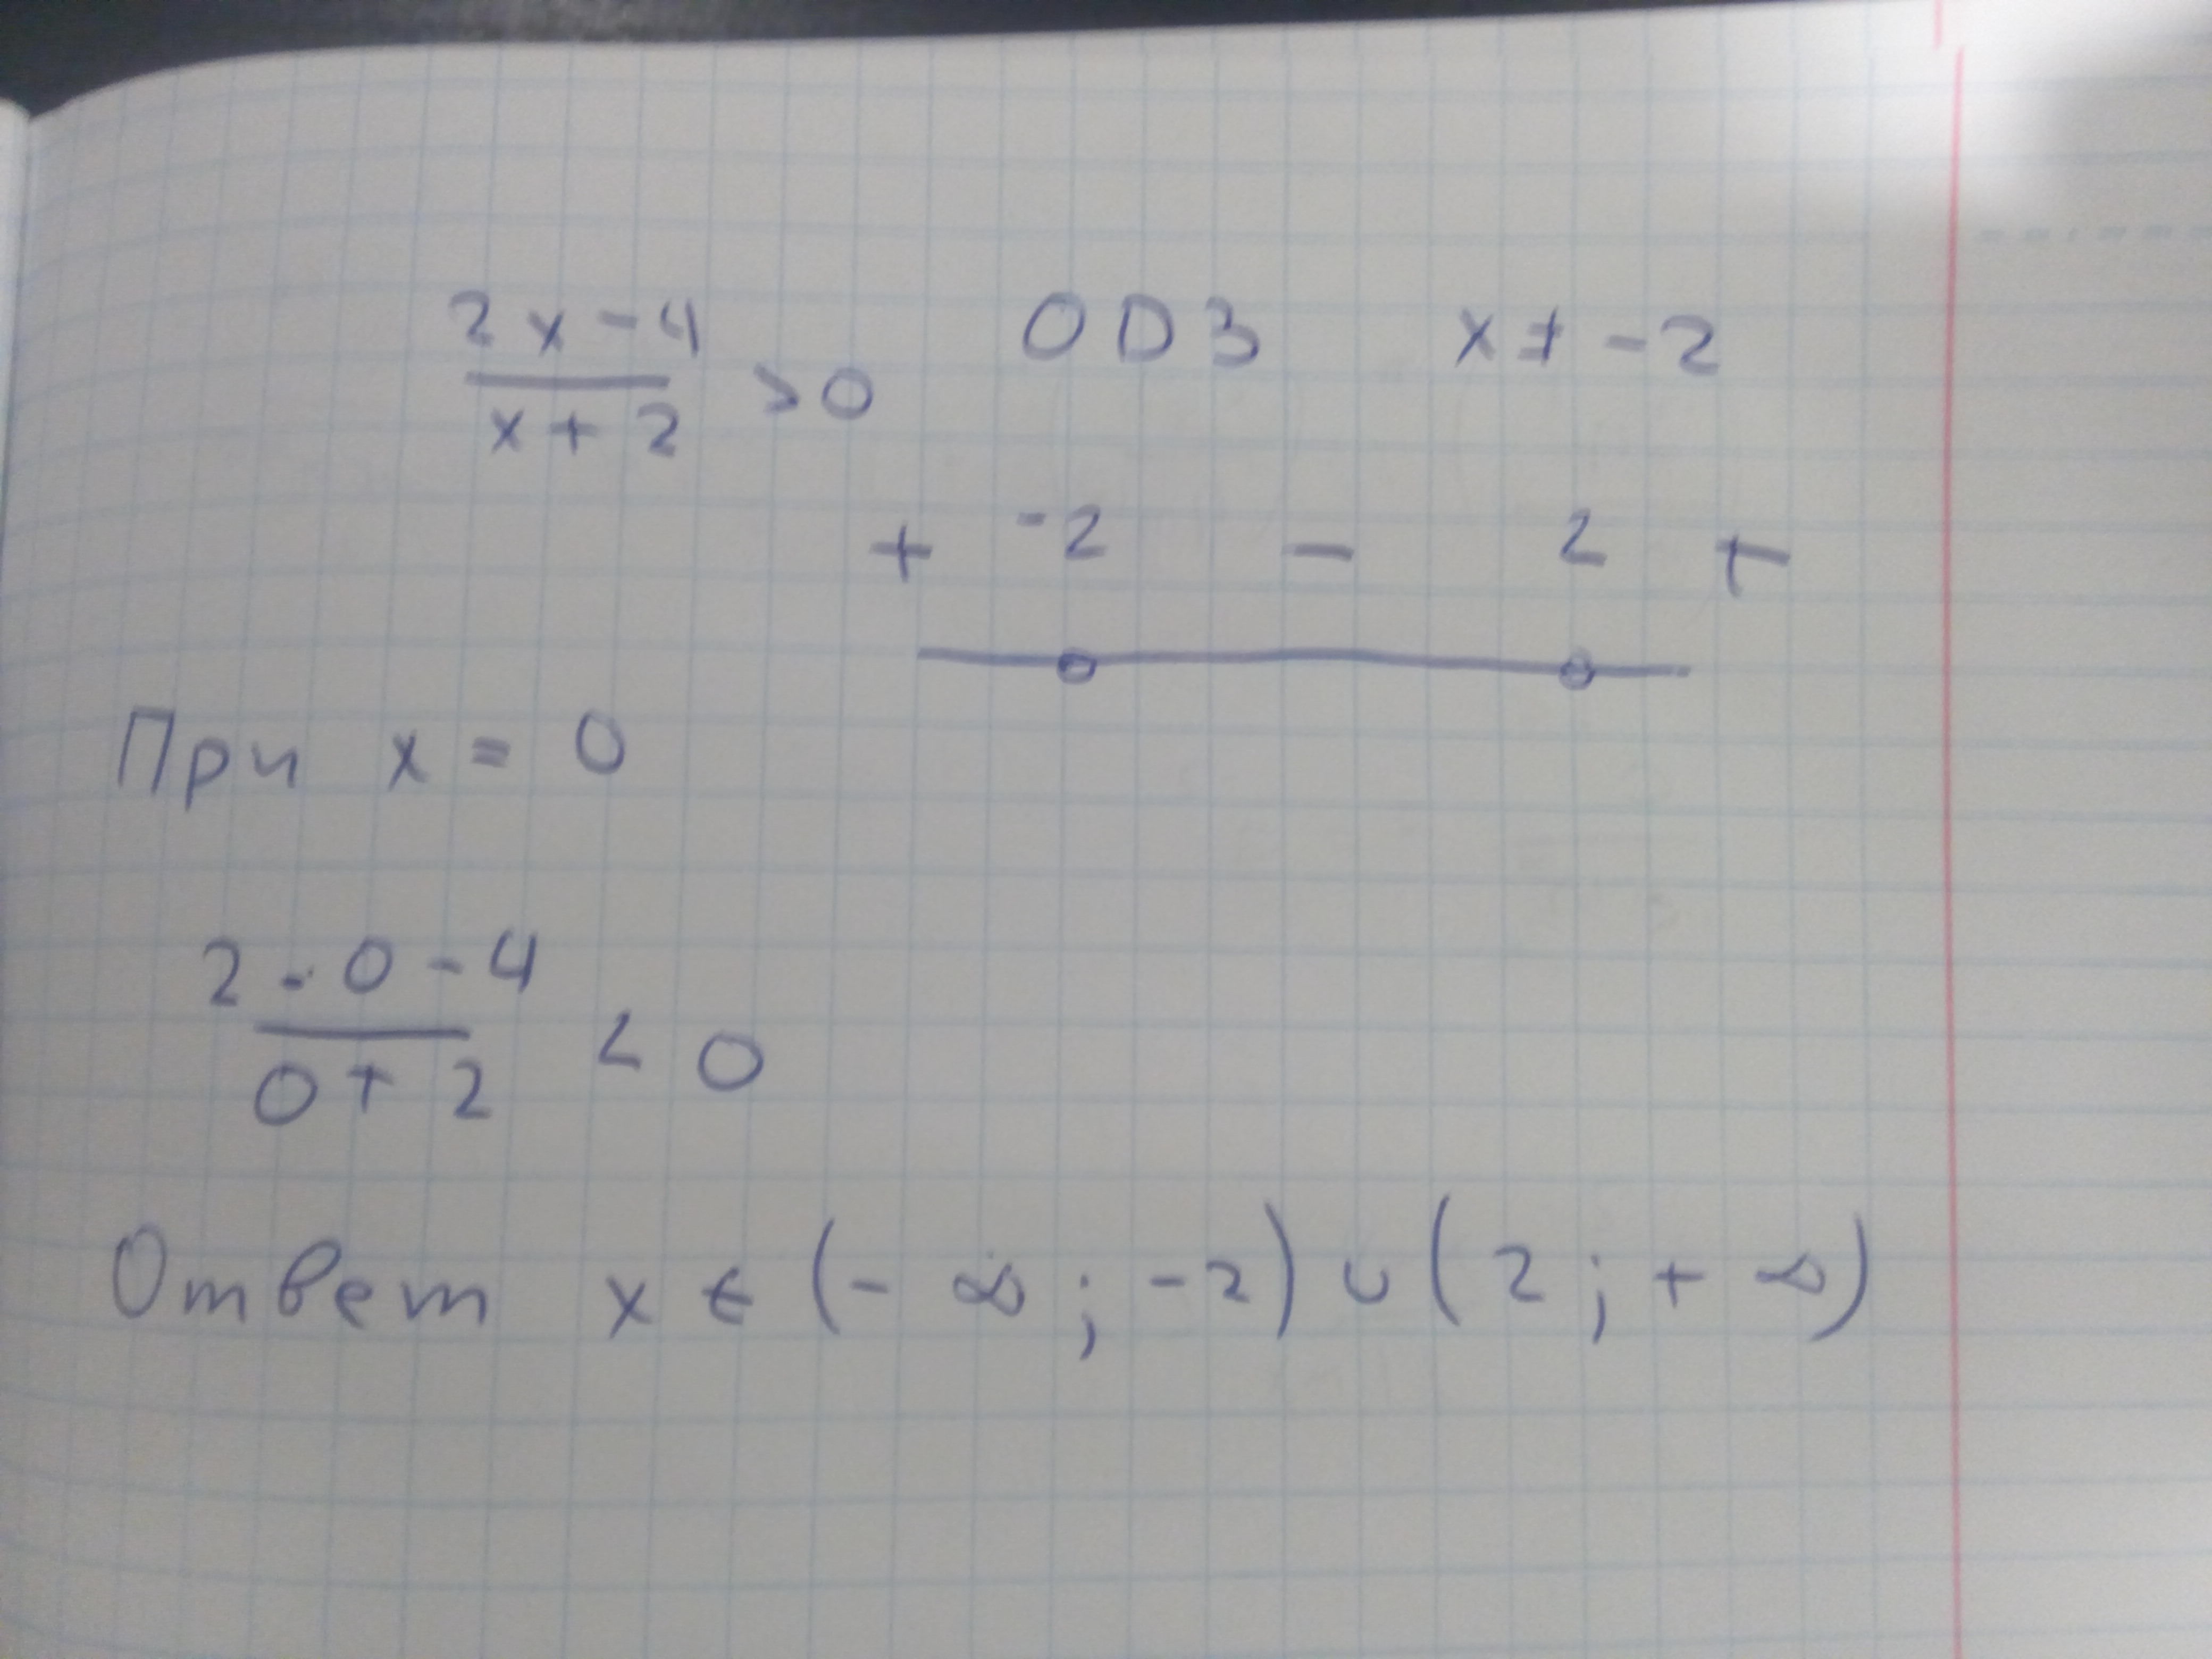 2x-4
x+2 >0 ОDЗ x≠-2
+ -2 - 2 +
При x = 0
2·0-4
0+2 < 0
Ответ x ∈ (-∞; -2) ∪ (2; +∞)